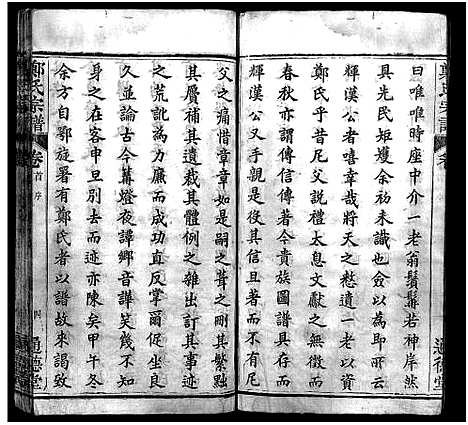 鄭氏宗譜
卷
曰唯唯時座中介一老翁鬚髯若神岸然
具先民矩矱余初未識也含以爲卽所云
輝漢公者嘻幸哉將天之憖遺一老以資
鄭氏乎昔尼父說禮太息文獻之無徵而
春秋亦謂信傳信著今貴族圖譜具存而
輝漢公又手親是役其信且著而不有尼
父之痛惜章章如是嗣之葺之刪其繁黜
其屬補其遺裁其體例之雜出訂其事迹
之荒訛爲力廉而成功反掌爾促坐良
久並論古今篝燈夜譚鄉音譁笑幾不知
身之在客中旦別去而迹亦陳矣甲午冬
余方自鄂旋署有鄭氏者以譜故來謁敂
鄭氏宗譜
卷首
序
四
通德堂
通德堂